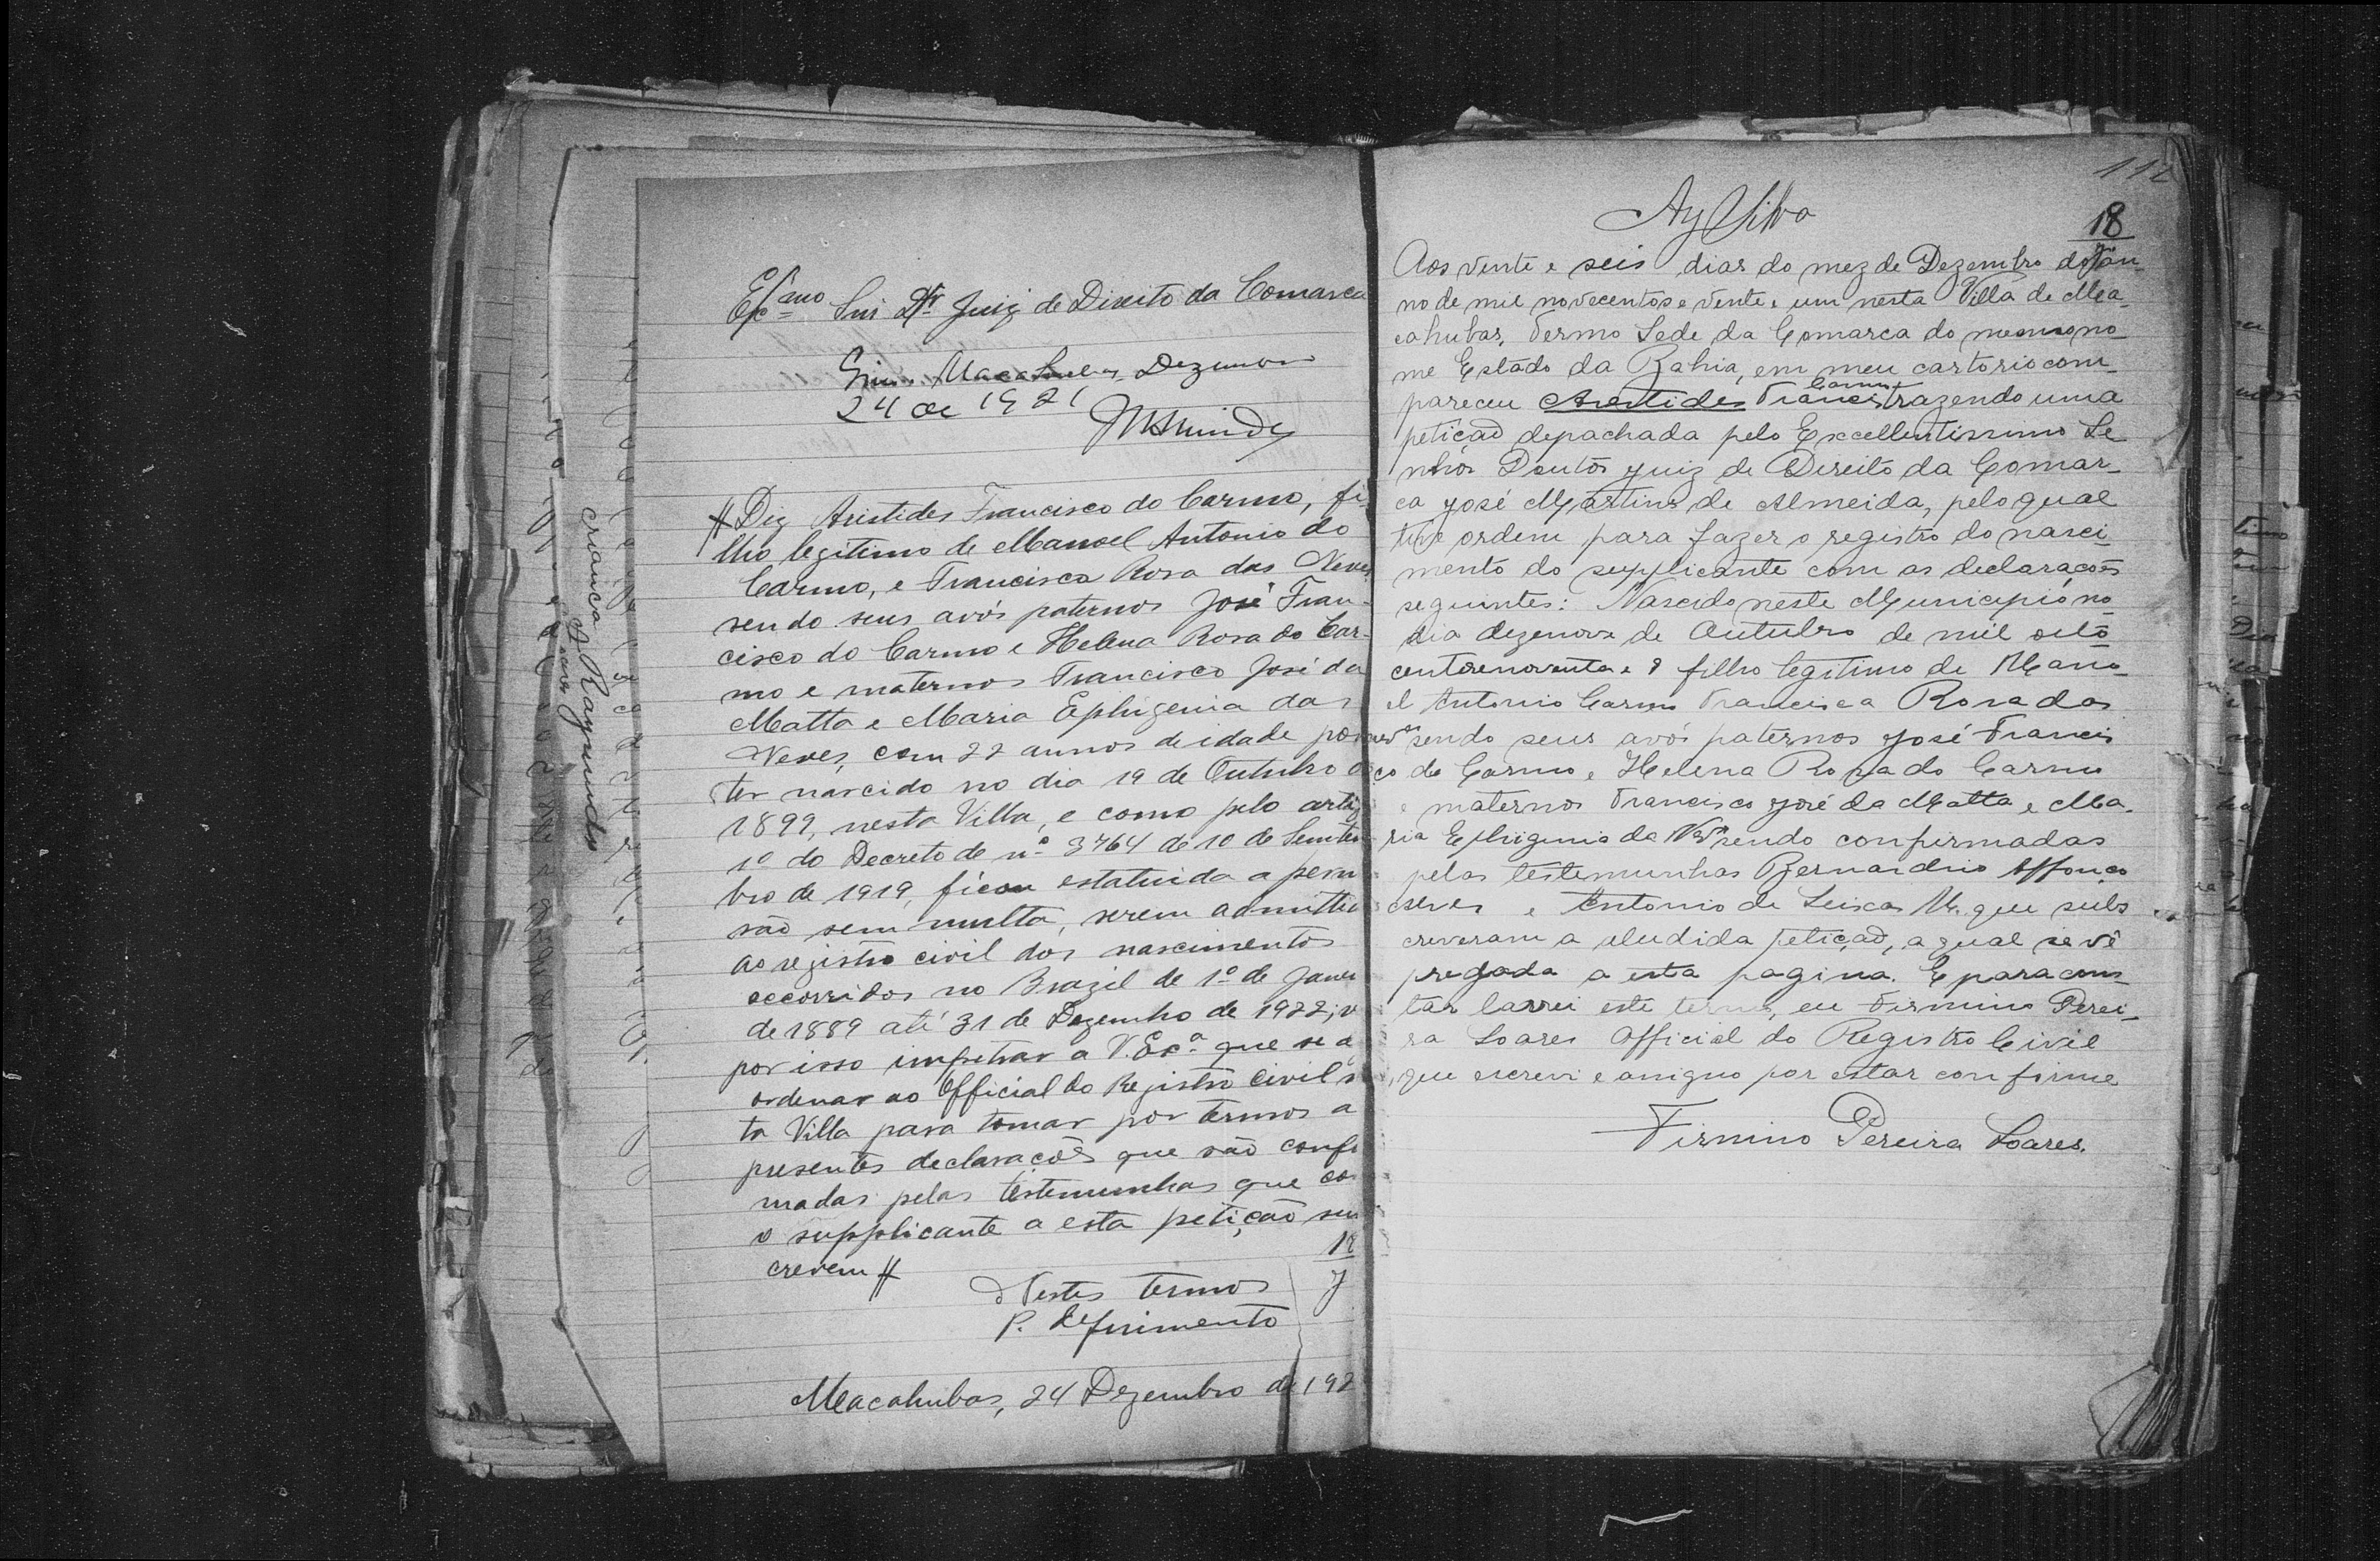 Juiz de Direito da Comarca
Macahubas, Dezembro
24 de 1921
Diz Aristides Francisco do Carmo, fi-
lho legitimo de Manoel Antonio do
Carmo, e Francisca Rosa das Neves
sendo seus avós paternos José Fran-
cisco do Carmo e Helena Rosa do Car-
mo e maternos Francisco José da
Matta e Maria Ephigenia das
Neves, com 22 annos de idade por
ter nascido no dia 19 de Outubro
1899, nesta Villa, e como pelo artig
1º do Decreto de nº 3764 de 10 de Setem
bro de 1919, ficou estatuida a perm
são sem multa, serem admitti
ao registro civil dos nascimentos
occorridos no Brazil de 1º de Janei
de 1889 até 31 de Dezembro de 1922; v
por isso impetrar a V. Exª que se
ordenar ao Official do Registro Civil
ta Villa para tomar por termos a
presentes declarações que são confi
madas pelas testemunhas que co
o supplicante a esta petição
crevem
18
Nestes termos
P. deferimento
Macahubas, 24 Dezembro de 192
criança
Raymundo
112
Ay Silva
18
Aos vente e seis dias do mez de Dezembro do an-
no de mil novecentos e vente e um nesta Villa de Ma-
cahubas, Termo Sede da Comarca do mesmo no-
me Estado da Bahia, em meu cartorio com-
pareceu Arestides Francis Carmo trazendo uma
petição depachada pelo Excellentissimo Se
nhor Doutor Juiz de Direito da Comar-
ca José Martins de Almeida, pelo qual
tive ordem para fazer o registro do nasci-
mento do supplicante com as declarações
seguintes: Nascido neste Municipio no
dia dezenove de Outubro de mil oito
centosenoventa e 9 filho legitimo de Mano-
el Antonio Carmo Francisca Rosa das
Neves sendo seus avós paternos José Francis
co do Carmo e Helena Rosa do Carmo
e maternos Francisco José da Matta e Ma-
ria Ephigenia da sendo confirmadas
pelas testemunhas Bernardino Affonço
e Antonio de que subs
creveram a aludida petição, a qual se vê
pregada a esta pagina. E para cons-
tar larvei este termo, eu Firmino Perei-
ra Soares Official do Registro Civil
que escrevi e assigno por estar conforme
Firmino Pereira Soares.